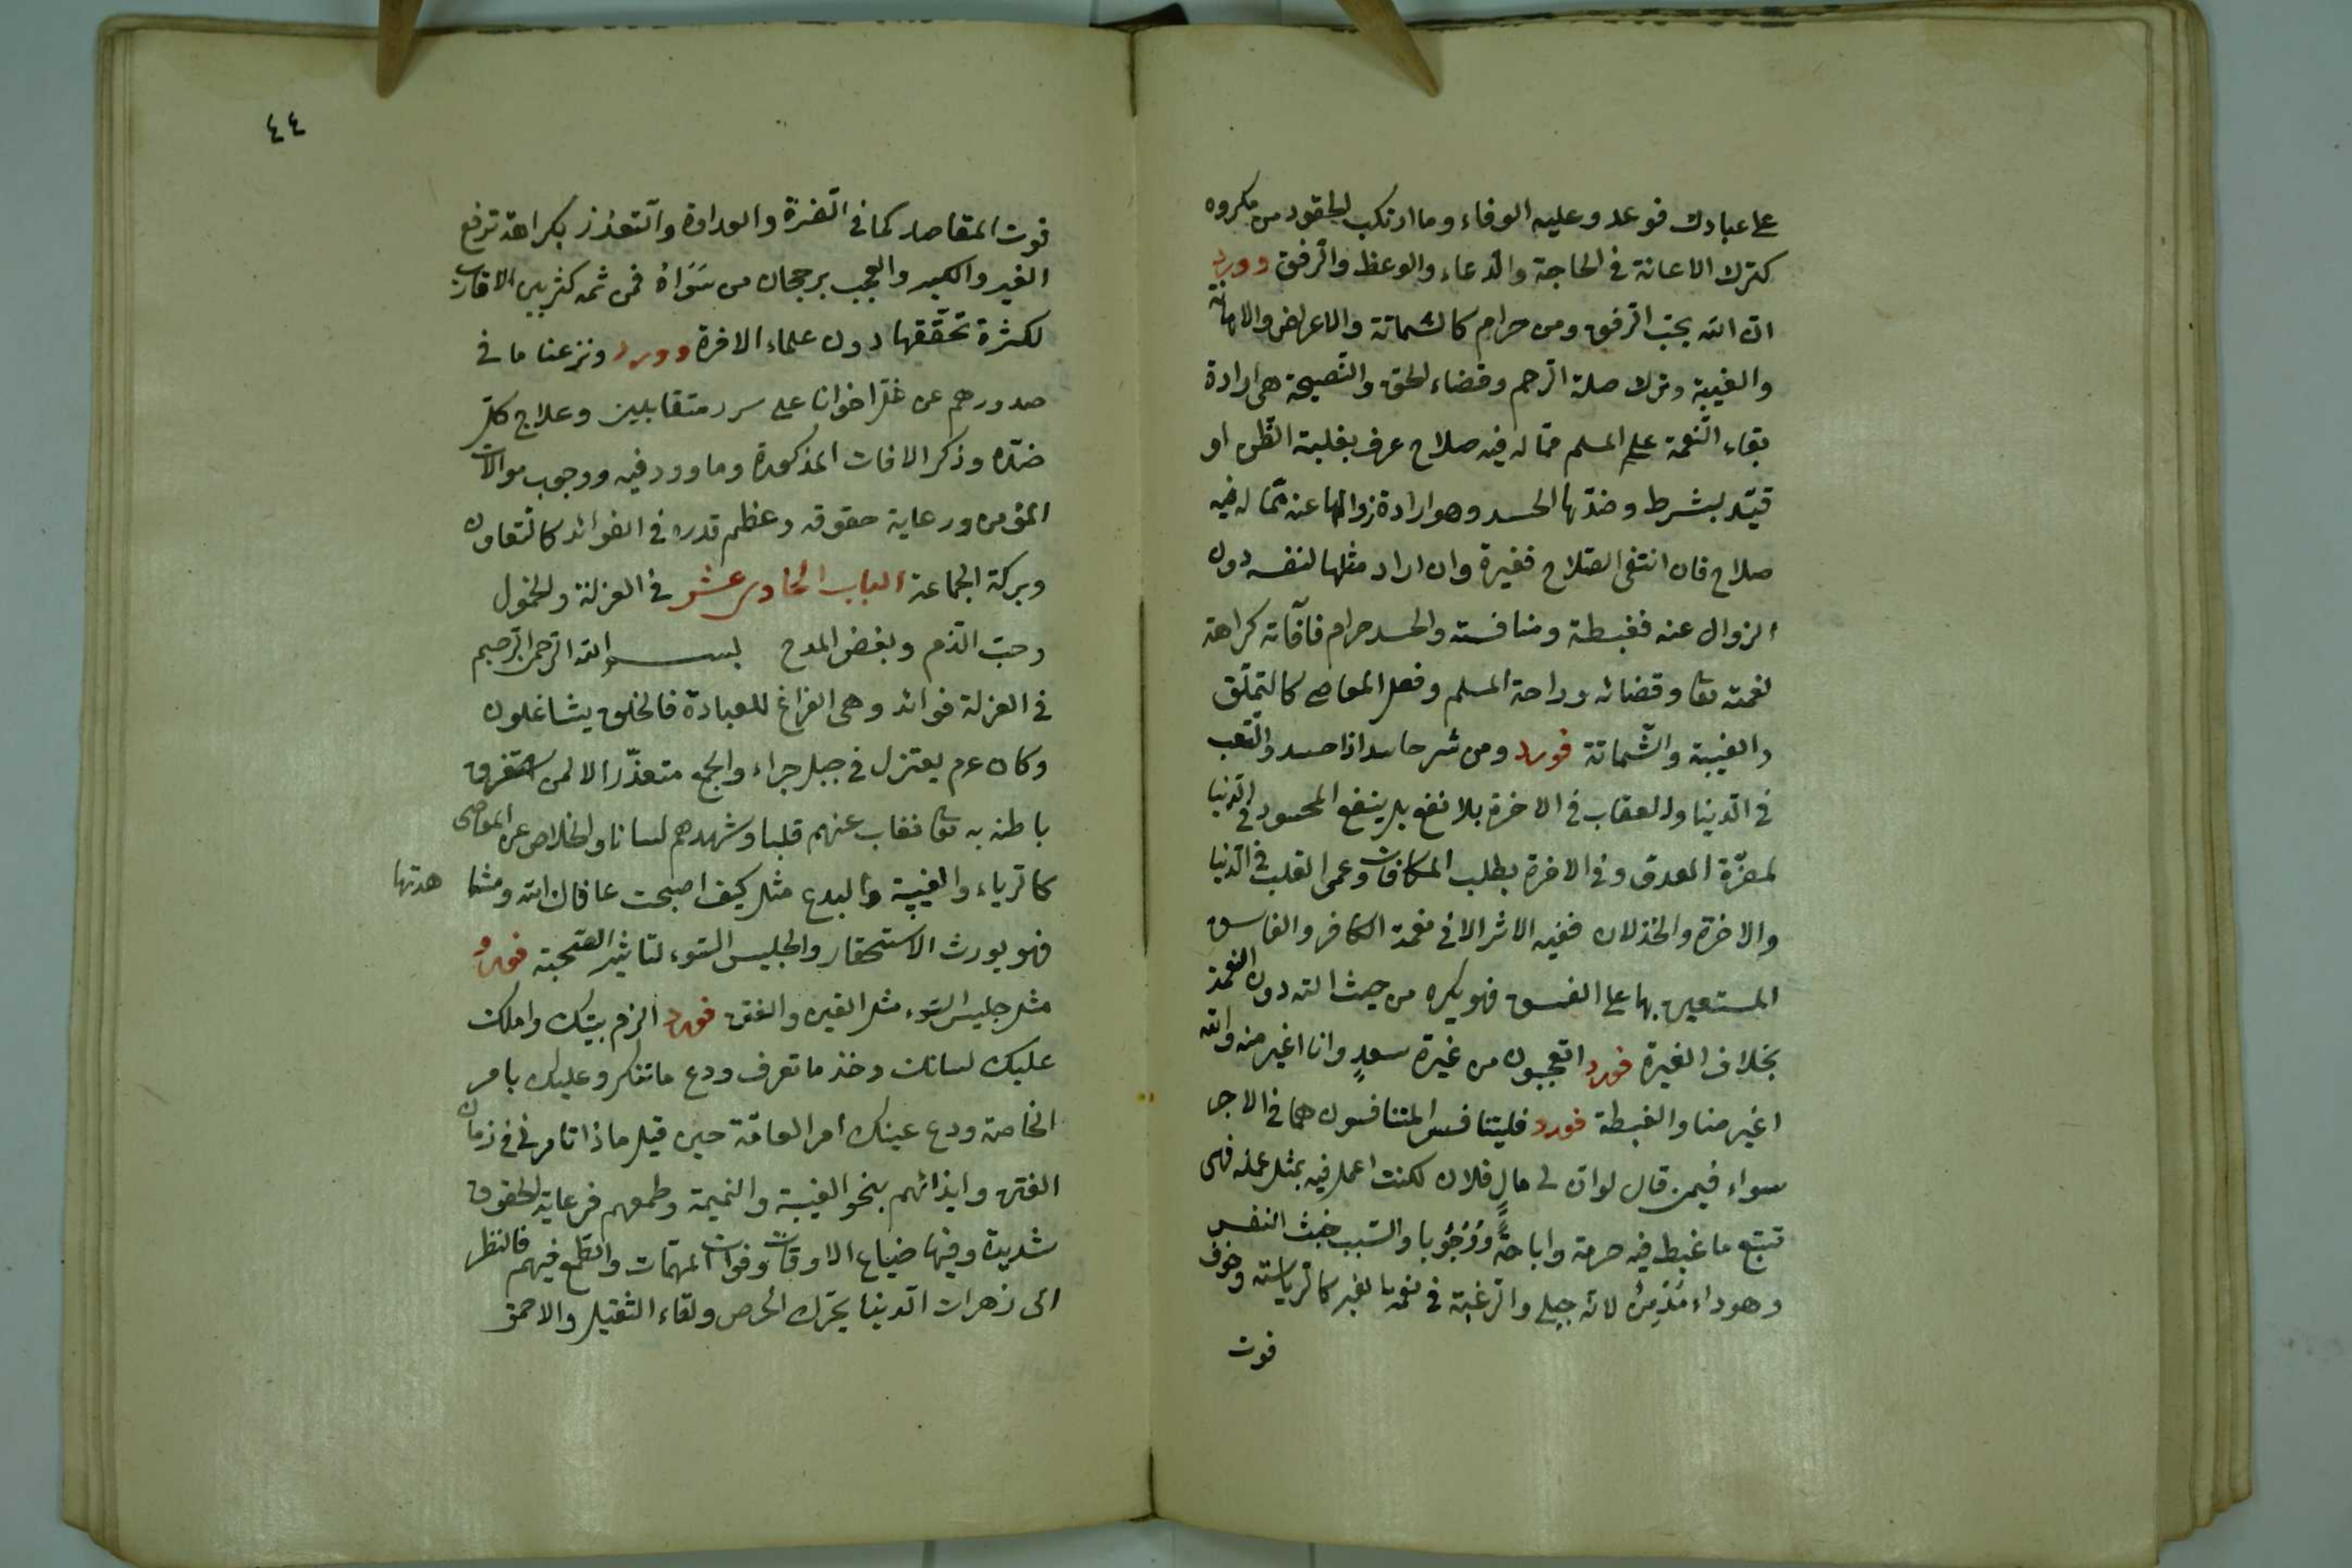 على عبادك فوعد وعليه الوفاء وما ارتكب لحقود من مكروه
كترك الاعانة فى الحاجة والدعاء والوعظ والرفق وورد
ان الله يحب الرفق ومن حرام كالشماتة والاعراض والاهانة
والغيبة وترك صلة الرحم وقضاء الحق والنصيحة هى ارادة
بقاء النعمة على المسلم مما له فيه صلاح عرف بغلبة الظن او
قيد بشرط وضدها الحسد وهو ارادة زوالها عنه مما له فيه
صلاح فان انتفى الصلاح فغيرة وان اراد مثلها لنفسه دون
الزوال عنه فغبطة ومنافسة والحسد حرام فآفاته كراهة
نعمته تعا وقضائه وراحة المسلم وفعل المعاصى كالتملق
والغيبة والشماتة فورد ومن شر حاسد اذا حسد والتعب
فى الدنيا والعقاب فى الاخرة بلا نفع بل ينفع المحسود فى الدنيا
لمضرة العدو وفى الاخرة بطلب المكافات وعمى القلب فى الدنيا
والاخرة والخذلان ففيه الاثر الا فى نعمة الكافر والفاسق
المستعين بها على الفسق فهو يكره من حيث التة دون النعمة
بخلاف الغيرة فورد اتعجبون من غيرة سعد وانا اغير منه والله
اغير منا والغبطة فورد فليتنافس المتنافسون هما فى الاجر
سواء فيمن قال لو ان لى مال فلان لكنت اعمل فيه بمثل عمله فهى
تتبع ما غبط فيه حرمة واباحة ووجوبا والسبب خبث النفس
وهو داء مزمن لانه جبلى والرغبة فى نعمة الغير كالرياسة وخوف
فوت
٤٤
فوت المقاصد كما فى الضرة والعداوة والتعزز بكراهة ترفع
الغير والكبر والعجب برجحان من سواه فمن ثمه كثر بين الاقارب
لكثرة تحققها دون علماء الاخرة وورد ونزعنا ما فى
صدورهم من غل اخوانا على سرر متقابلين وعلاج كل
ضده وذكر الافات المذكورة وما ورد فيه ووجوب موالات
المؤمن ورعاية حقوقه وعظم قدره فى الفوائد كالتعاون
وبركة الجماعة الباب الحادى عشر فى العزلة والخمول
وحب الذم وبغض المدح بسم الله الرحمن الرحيم
فى العزلة فوائد وهى الفراغ للعبادة فالخلق يشاغلون
وكان عم يعتزل فى جبل حراء والجمع متعذر الا لمن استغرق
باطنه به تعا فغاب عنهم قلبا وشهدهم لسانا والخلاص عن المعاصى
كالرياء والغيبة والبدع مثل كيف اصبحت عافاك الله ومشا هدتها
فهو يورث الاستحقار والجليس السوء لتاثير الصحبة فورد
مثل جليس السوء مثل القين والفتن فورد الزم بيتك واملك
عليك لسانك وخذ ما تعرف ودع ما تنكر وعليك بامر
الخاصة ودع عينك امر العامة حين قيل ماذا تامرنى فى زمان
الفتن وايذائهم بنحو الغيبة والنميمة وطمعهم فرعاية الحقوق
شديدة وفيها ضياع الاوقات وفوات المهمات والطمع فيهم فالنظر
الى زهرات الدنيا يحرك الحرص ولقاء الثقيل والاحمق